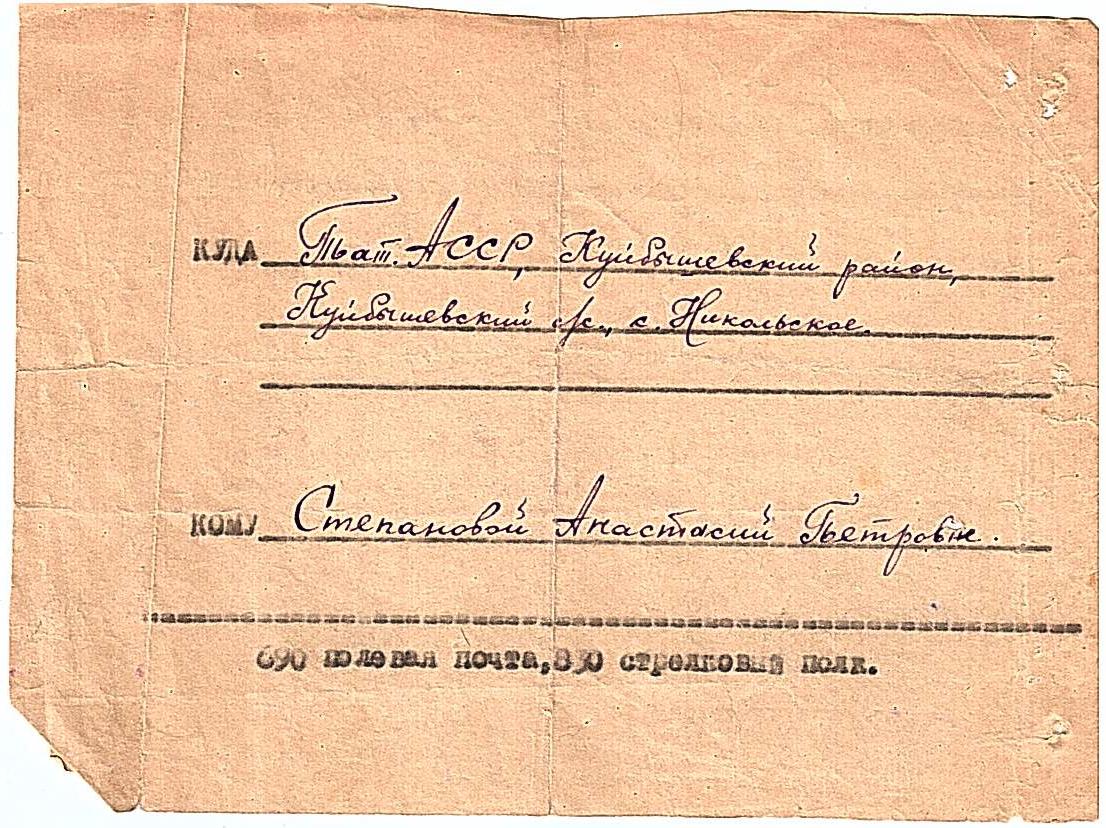 КУДА Тат. АССР, Куйбышевский район,
Куйбышевский с/с., с. Никольское.
КОМУ Степановой Анастасий Петровне.
690 полевая почта, 830 стрелковый полк.